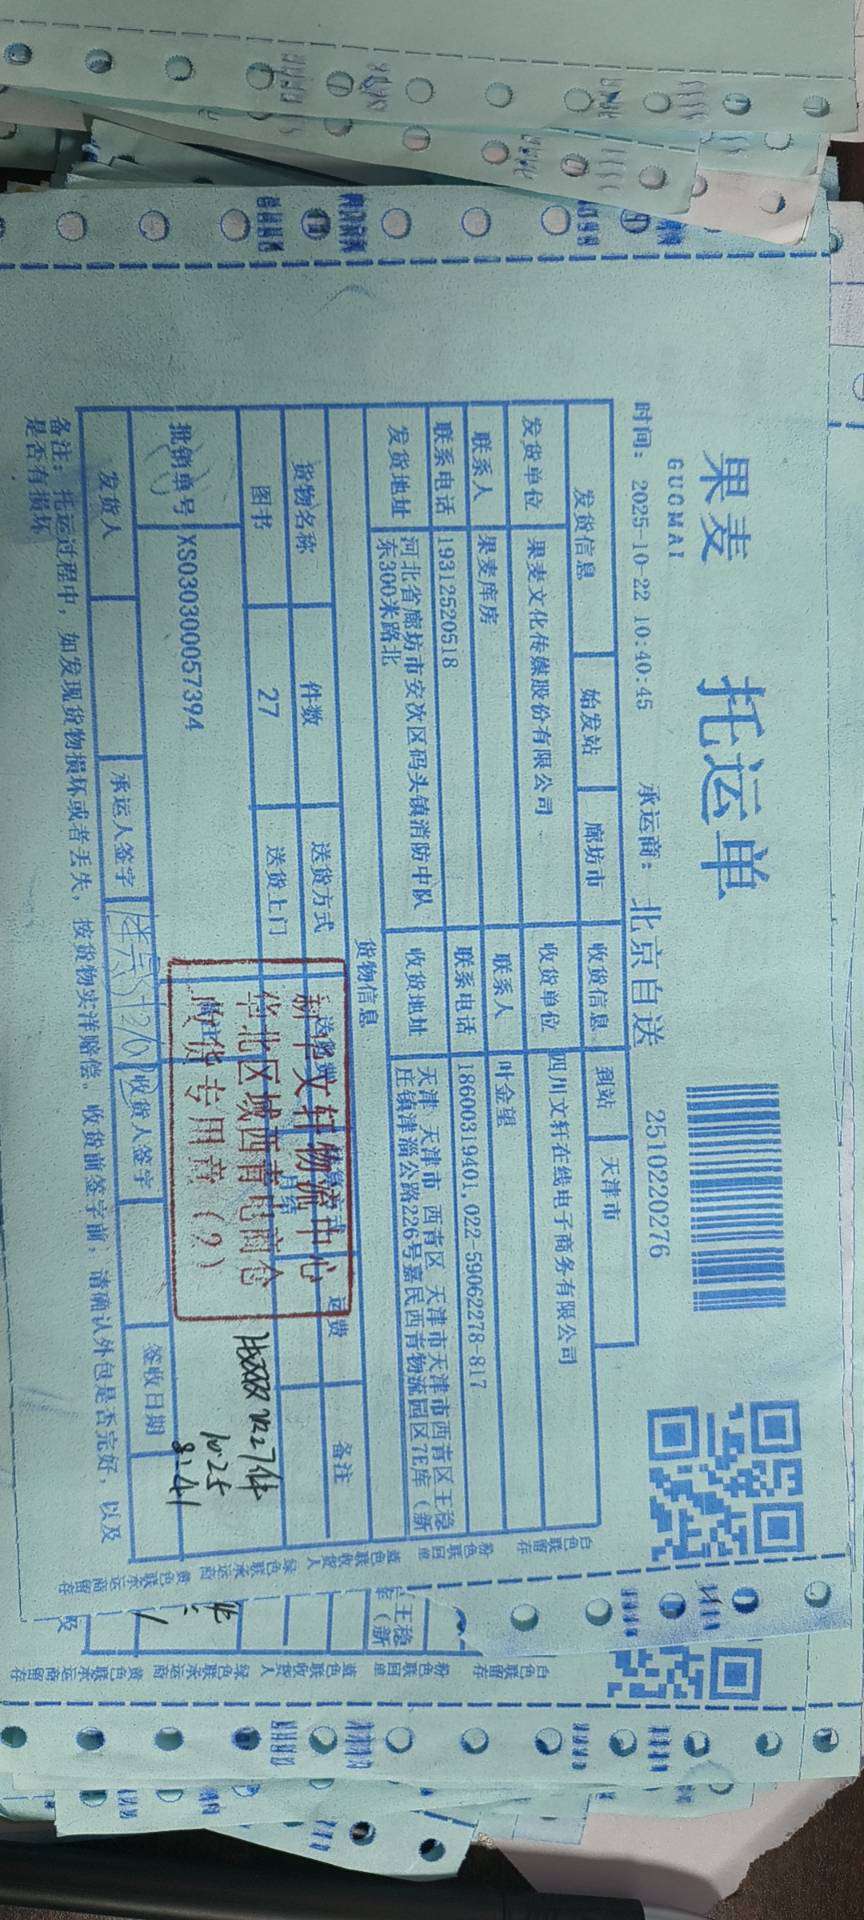 果麦 托运单
GUOMAI
时间: 2025-10-22 10:40:45 承运商: 北京自送 2510220276
发货信息 始发站 廊坊市 收货信息 到站 天津市
发货单位 果麦文化传媒股份有限公司 收货单位 四川文轩在线电子商务有限公司
联系人 果麦库房 联系人 叶金望
联系电话 19312520518 联系电话 18600319401,022-59062278-817
发货地址 河北省廊坊市安次区码头镇消防中队东300米路北 收货地址 天津 天津市 西青区 天津市天津市西青区王稳庄镇津淄公路226号嘉民西青物流园区7E库（新
货物信息
货物名称 件数 送货方式 运费 备注
图书 27 送货上门 月结
批销单号 XS030300057394
新华文轩物流中心
华北区域西青电商仓
收货专用章（2）
27件
10.25
发货人 承运人签字 收货人签字 签收日期
备注: 托运过程中，如发现货物损坏或者丢失，按货物实洋赔偿。收货前签字前，请确认外包是否完好，以及
是否有损坏
白色联留存 粉色联回单 蓝色联收货人 绿色联承运商 黄色联承运商留存
王稳
（新
及
白色联留存 粉色联回单 蓝色联收货人 绿色联承运商 黄色联承运商留存